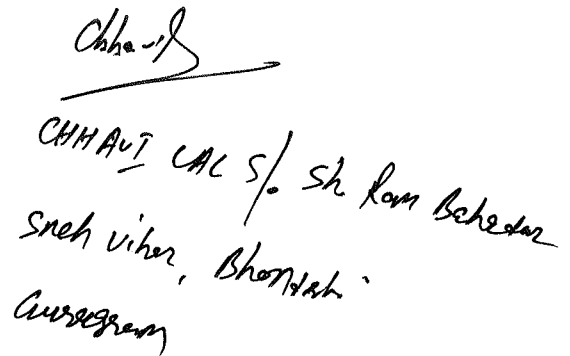 Chhavil
CHHAVI LAL S/. Sh Ram Bahadar
Sneh Vihar, Bhondshi
Gurugram